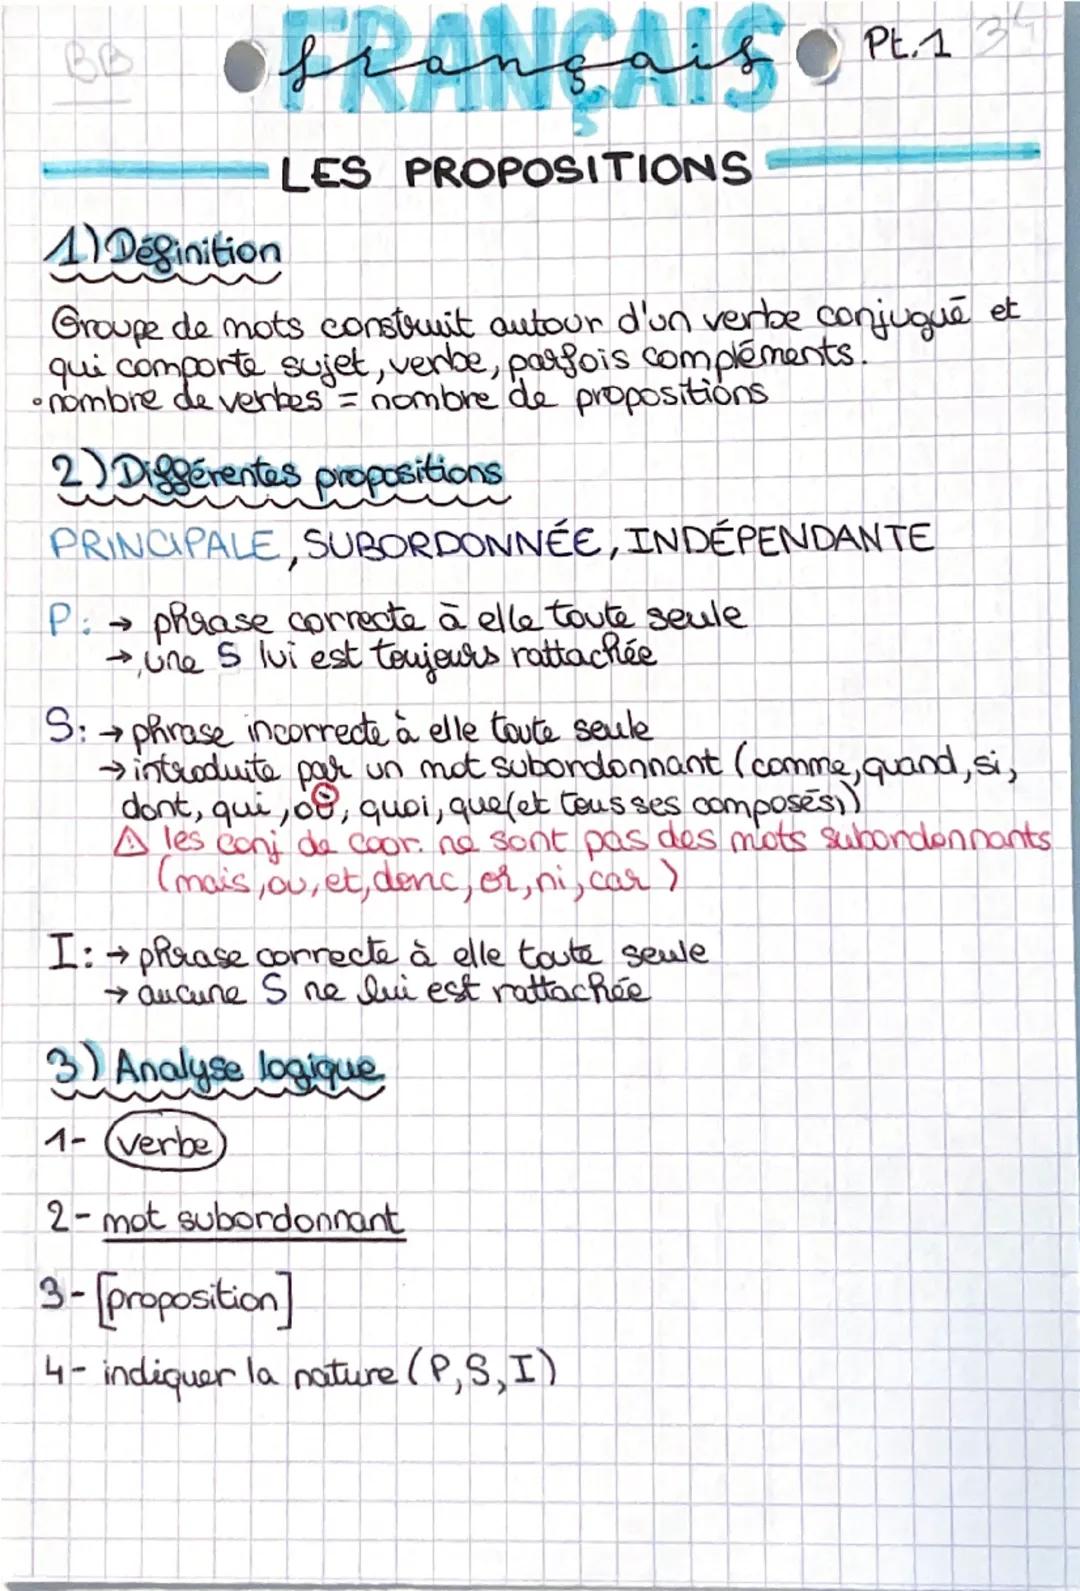 BB
FRANÇAIS
français
Pt.1
LES PROPOSITIONS
1) Définition
Groupe de mots construit autour d'un verbe conjugué et
qui comporte sujet, verbe, parfois compléments.
• nombre de verbes = nombre de propositions
2) Différentes propositions
PRINCIPALE, SUBORDONNÉE, INDÉPENDANTE
P: → phrase correcte à elle toute seule
→ une S lui est toujours rattachée
S: → phrase incorrecte à elle toute seule
→ introduite par un mot subordonnant (comme, quand, si,
dont, qui, où, quoi, que(et tous ses composés))
⚠ les conj de coor. ne sont pas des mots subordonnants
(mais, ou, et, donc, or, ni, car)
I: → phrase correcte à elle toute seule
→ aucune S ne lui est rattachée
3) Analyse logique
1- verbe
2- mot subordonnant
3- [proposition]
4- indiquer la nature (P, S, I)